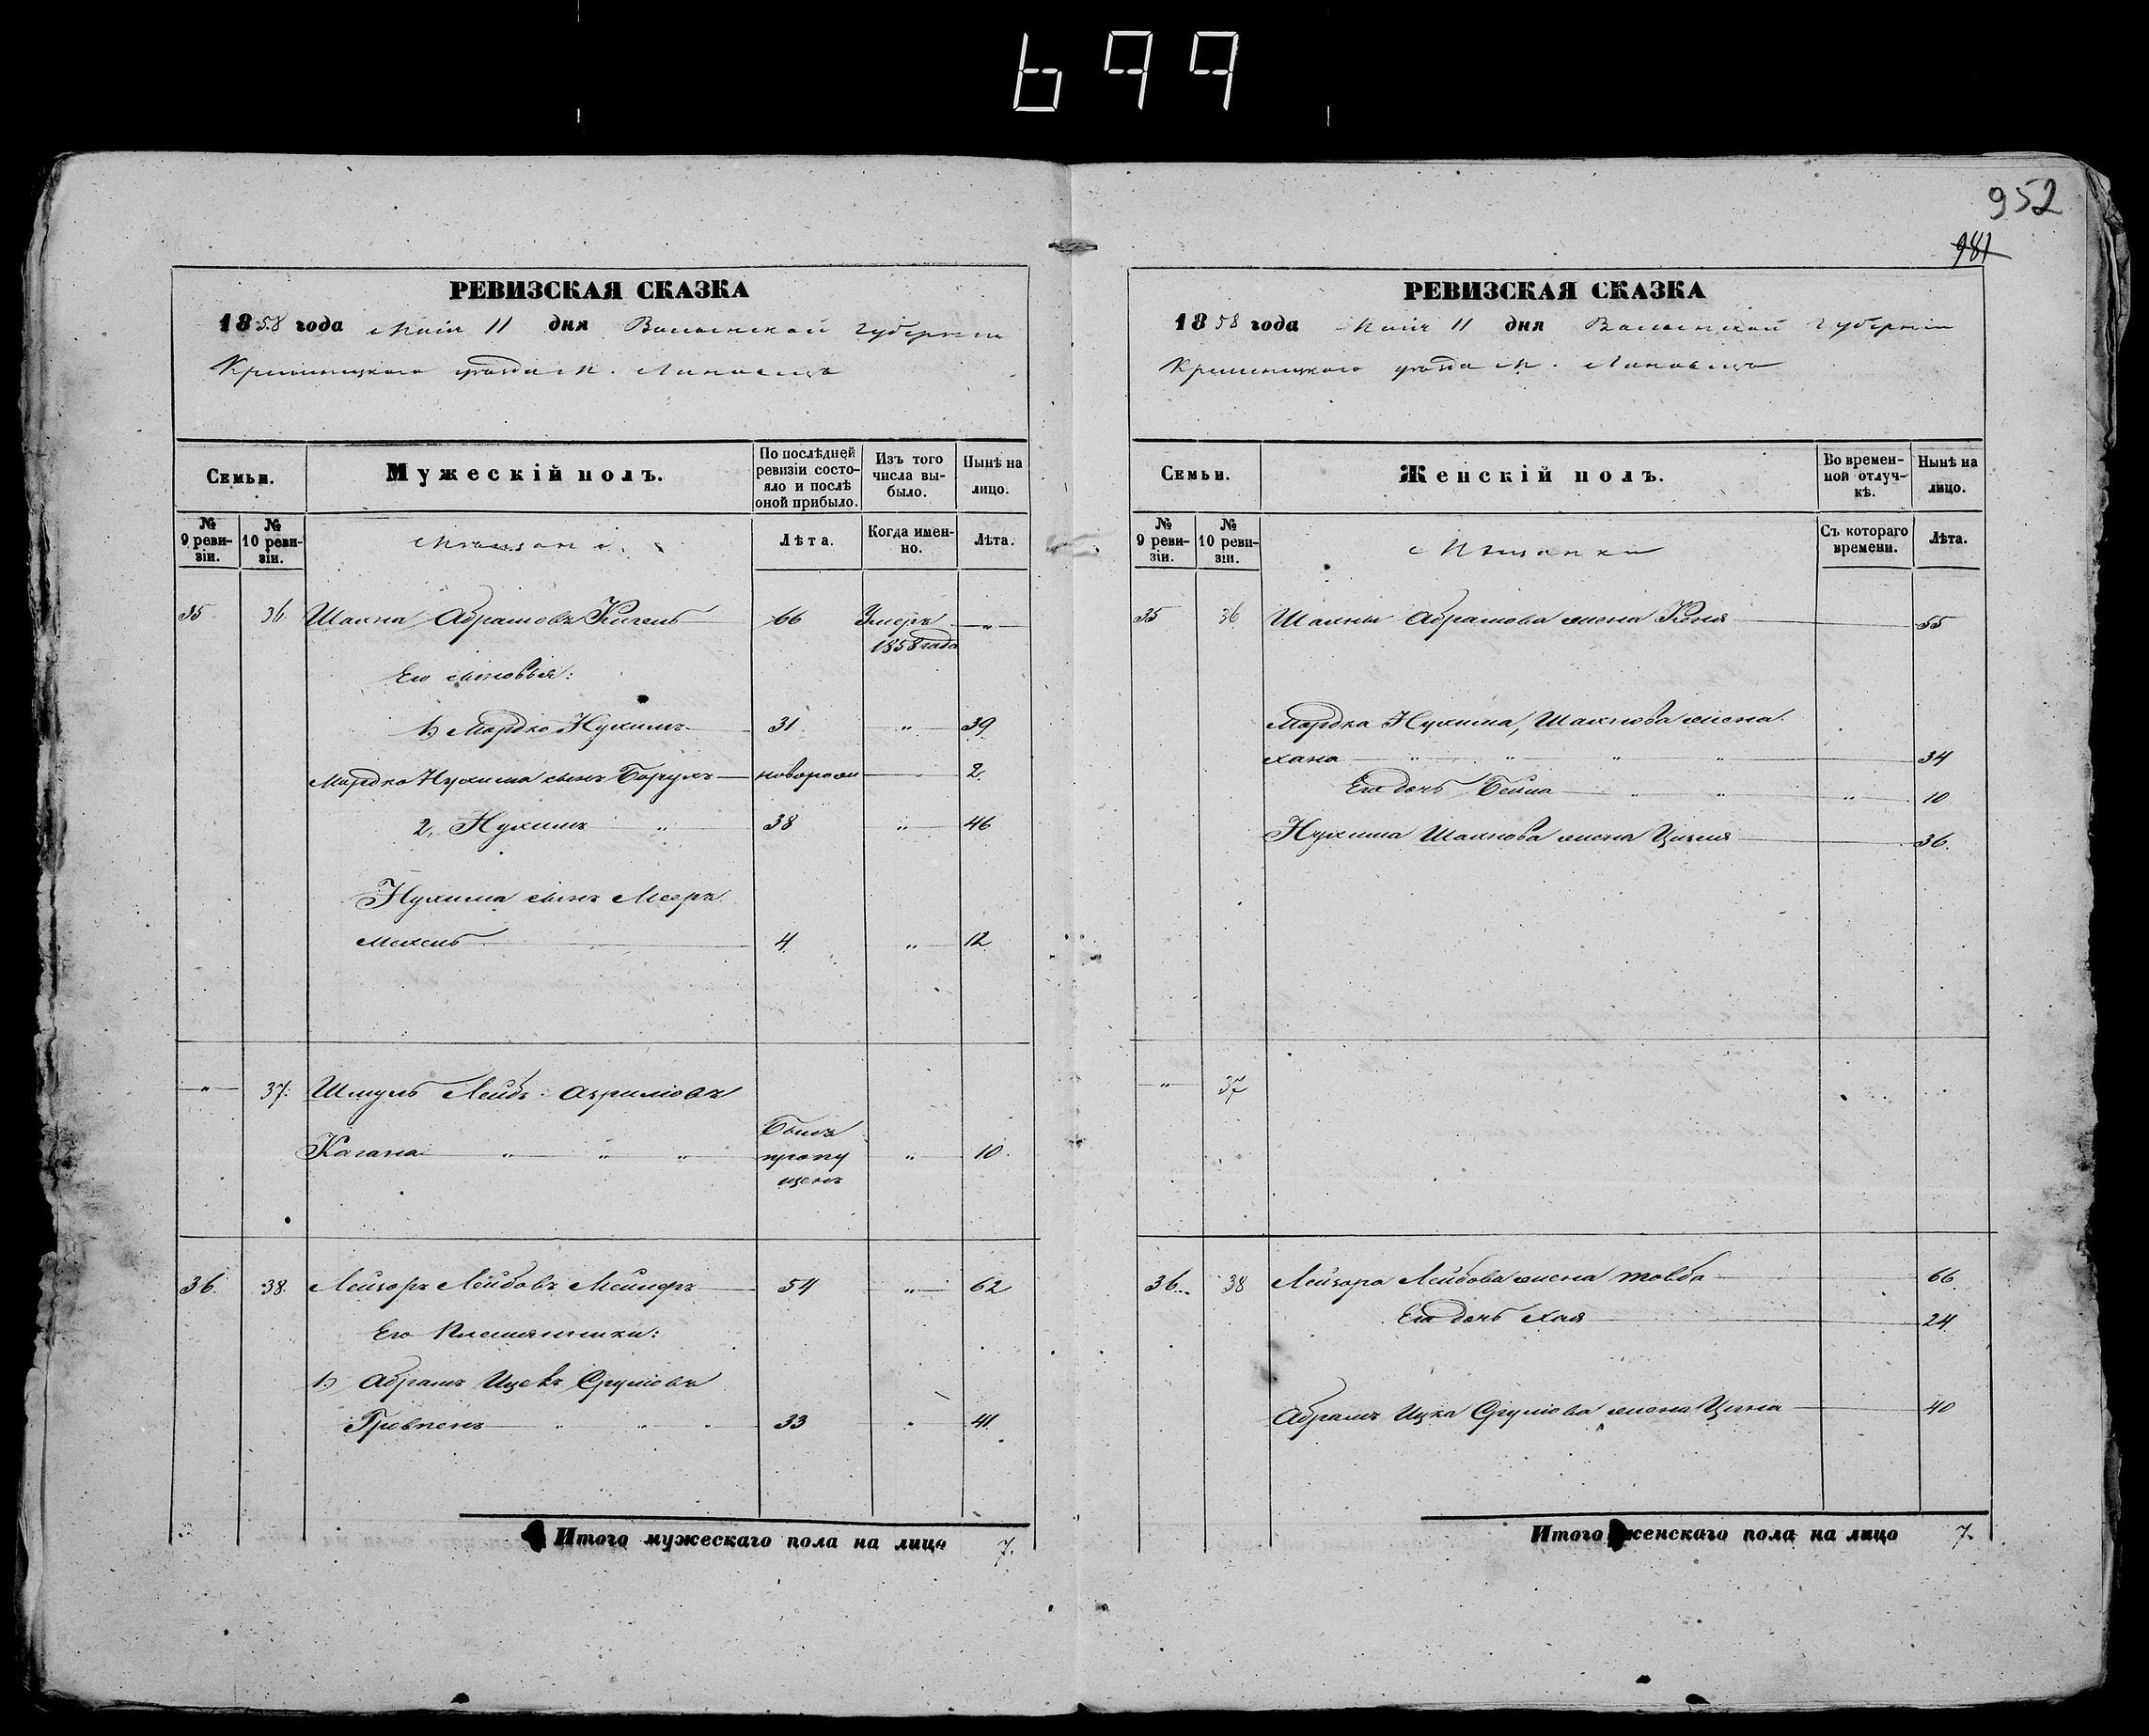 699
952
981
РЕВИЗСКАЯ СКАЗКА
1858 года Маія 11 дня Волынской губерніи
Кременецкаго уѣзда М. Лановецъ
Семьи.
Мужескій полъ.
По послѣдней ревизіи состояло и послѣ оной прибыло.
Изъ того числа выбыло.
Нынѣ на лицо.
№ 9 ревизіи.
№ 10 ревизіи.
Мѣщане
Лѣта.
Когда именно.
Лѣта.
35 36. Шахна Абрамовъ 66 Умеръ — „ —
1858 года
Его сыновья:
1) Мордко Нухимъ 31 „ 39
Мордко Нухима сынъ Борухъ — новорож — 2.
2, Нухимъ „ 38 „ 46
Нухима сынъ Мееръ
Мехель 4 „ 12
„ 37. Шмуль Лейбъ
Кагана „ „ „ Былъ пропущенъ „ 10.
36. 38. Лейзоръ Лейбовъ 54 „ 62
Его Племянники:
1) Абрамъ Ицекъ Срулiовъ
33 „ 41.
Итого мужескаго пола на лицо 7.
РЕВИЗСКАЯ СКАЗКА
1858 года Маія 11 дня Волынской губерніи
Кременецкаго уѣзда М. Лановецъ
Семьи.
Женскій полъ.
Во временной отлучкѣ.
Нынѣ на лицо.
№ 9 ревизіи.
№ 10 ревизіи.
Мѣщанки
Съ котораго времени.
Лѣта.
35 36 Шахны Абрамова жена 55
Мордка Нухима, Шахнова жена
Хана „ „ „ „ 34
Его дочь Бейла „ „ „ 10
Нухима Шахнова жена 36.
„ 37
36. 38 Лейзора Лейбова жена Товба 66.
Его дочь Хая 24
Абрамъ Ицка Срулiова жена 40
Итого женскаго пола на лицо 7.